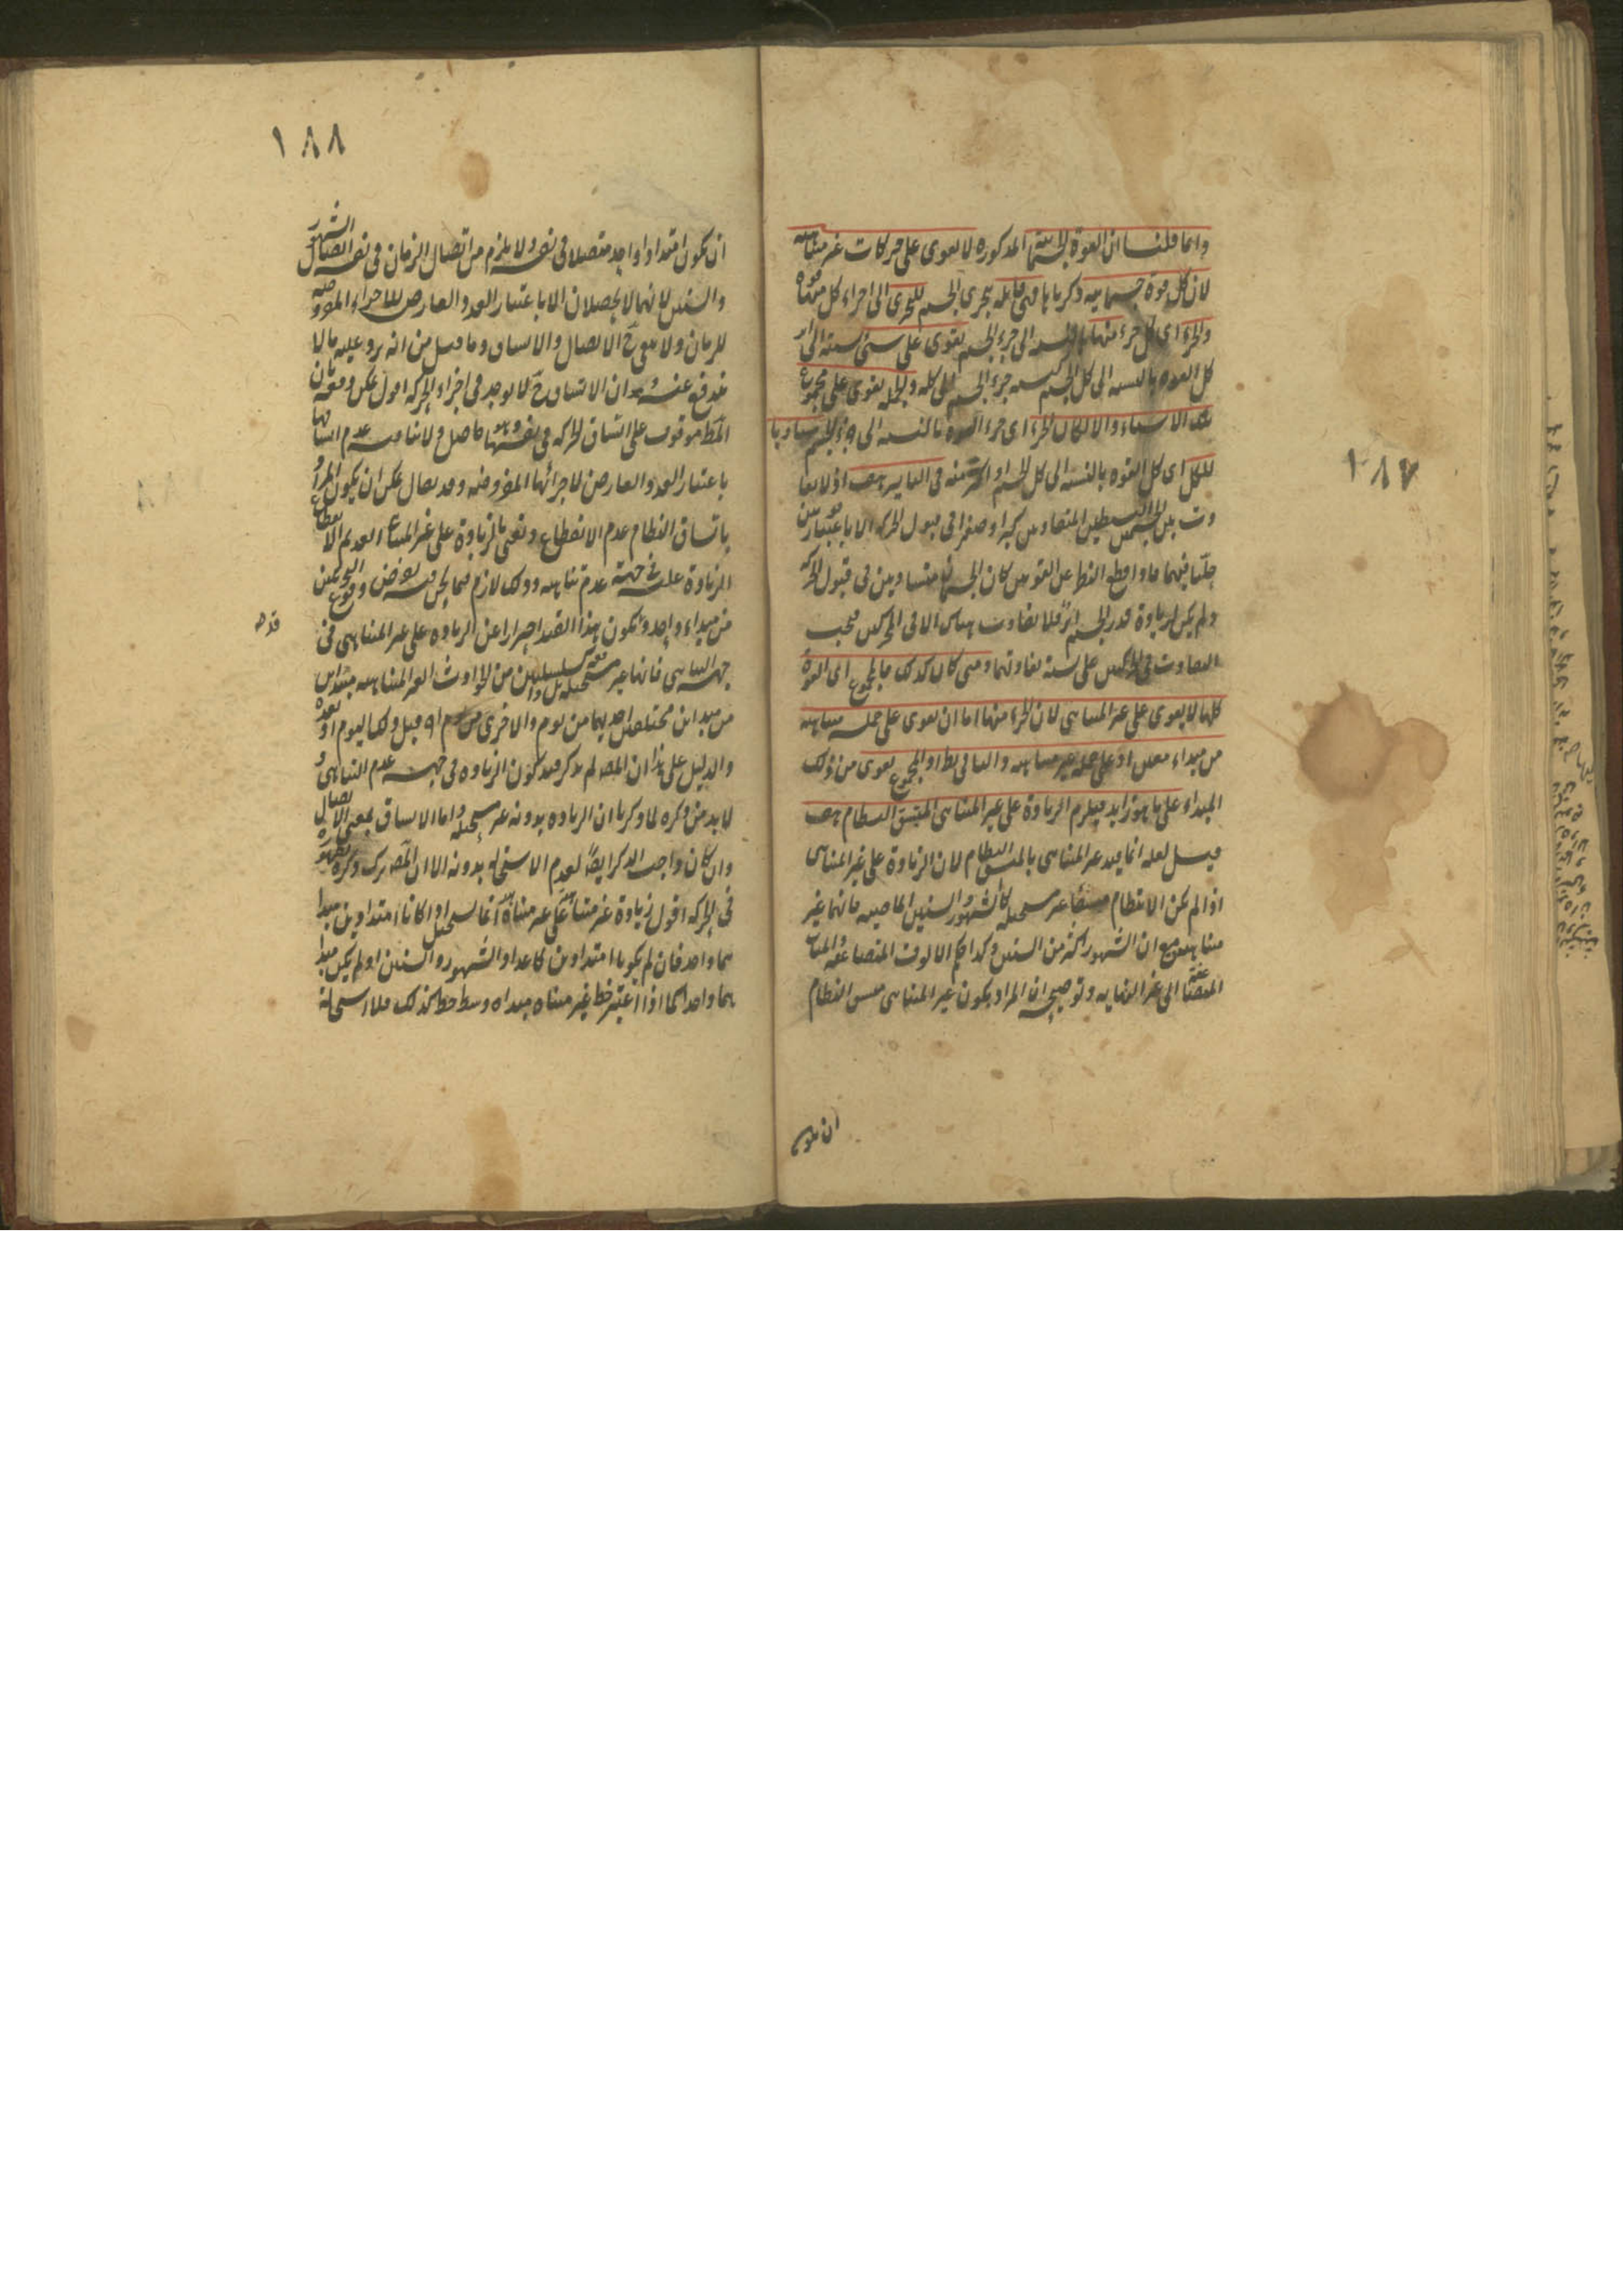 ١٨٧
وانما قلنا ان القوة الجسمانية المذكورة لا تقوى على حركات غير متناهية
لان كل قوة جسمانية ذكرناها فهي قابلة بتجزي الجسم للتجزي الى اجزاء كل منها قوة
والجزء اى كل جزء منها بالنسبة الى جزء الجسم يقوى على شئ نسبته الى اثر
كل القوة بالنسبة الى كل الجسم كنسبة جزء الجسم الى كله والجملة تقوى على مجموع
تلك الاشياء والا لكان الجزء اى جزء القوة بالنسبة الى جزء الجسم مساويا
للكل اى كل القوة بالنسبة الى كل الجسم او اكثر منه فى التاثير هف اذ لا تفا
وت بين الجسمين البسيطين المتفاوتين كبرا وصغرا فى قبول الحركة الا باعتبار قوتين
حلتا فيهما فاذا قطع النظر عن القوتين كان الجسمان متساويين فى قبول الحركة
ولم يكن لزيادة قدر الجسم اثر فلا تفاوت هناك الا فى المحركين فيجب
التفاوت فى الحركتين على نسبة تفاوتهما ومتى كان كذلك فالمجموع اى القوة
كلها لا يقوى على غير المتناهى لان الجزء منها اما ان يقوى على جملة متناهية
من مبداء معين او على جملة غير متناهية والثانى بط اذ المجموع يقوى من ذلك
المبداء على ما هو زايد فيلزم الزيادة على غير المتناهى المتسق النظام هف
قيل لعله انما قيد غير المتناهى بالمتسق النظام لان الزيادة على غير المتناهى
اذا لم يكن الانتظام متسقا غير مستحيلة كالشهور والسنين الماضية فانهما غير
متناهيين مع ان الشهور اكثر من السنين وكذا حكم الالوف المتضاعفة والمئات
المتضاعفة الى غير النهاية وتوضيحه ان المراد بكون غير المتناهى متسق النظام
ان يكون
١٨٨
ان يكون امتدادا واحدا متصلا فى نفسه ولا يلزم من اتصال الزمان فى نفسه اتصال الشهور
والسنين لانهما لا يحصلان الا باعتبار العدد العارض للاجزاء المفروضة
للزمان ولا يبقى ح الاتصال والاتساق وما قيل من انه يرد عليه ما لا
يندفع عنه وهو ان الاتساق ح لا يوجد فى اجزاء الحركة اقول يمكن دفعه بان
المط موقوف على اتساق الحركة فى نفسها وهو حاصل ولا ينافيه عدم اتساقها
باعتبار العدد العارض لاجزائها المفروضة وقد يقال يمكن ان يكون المراد
باتساق النظام عدم الانقطاع ونعنى بالزيادة على غير المتناهى العديم الانقطاع
الزيادة عليه فى جهة عدم تناهيه وذلك لازم فيما نحن فيه لفرض وقوع التحريكين
من مبداء واحد ويكون هذا القيد احترازا عن الزيادة على غير المتناهى فى
جهة التناهى فانها غير مستحيلة بل واقعة كسلسلتين من الحوادث الغير المتناهية مبتدأتين
من مبدأين مختلفين احديهما من يوم والاخرى من يوم اخر قبل ذلك اليوم او بعده
والدليل على هذا ان المص لم يذكر قيد كون الزيادة فى جهة عدم التناهى و
لا بد من ذكره لما ذكرنا ان الزيادة بدونه غير مستحيلة واما الاتساق بمعنى الاتصال
وان كان واجب الذكر ايضا لعدم الاستحالة بدونه الا ان المص ترك ذكره لظهوره
فى الحركة اقول زيادة غير متناه على غير متناه انما تستحيل اذا كانا امتدادين مبدأ
هما واحد فان لم يكونا امتدادين كاعداد الشهور والسنين او لم يكن مبدأ
هما واحدا كما اذا اعتبر خط غير متناه مبداه وسط خط كذلك فلا استحالة